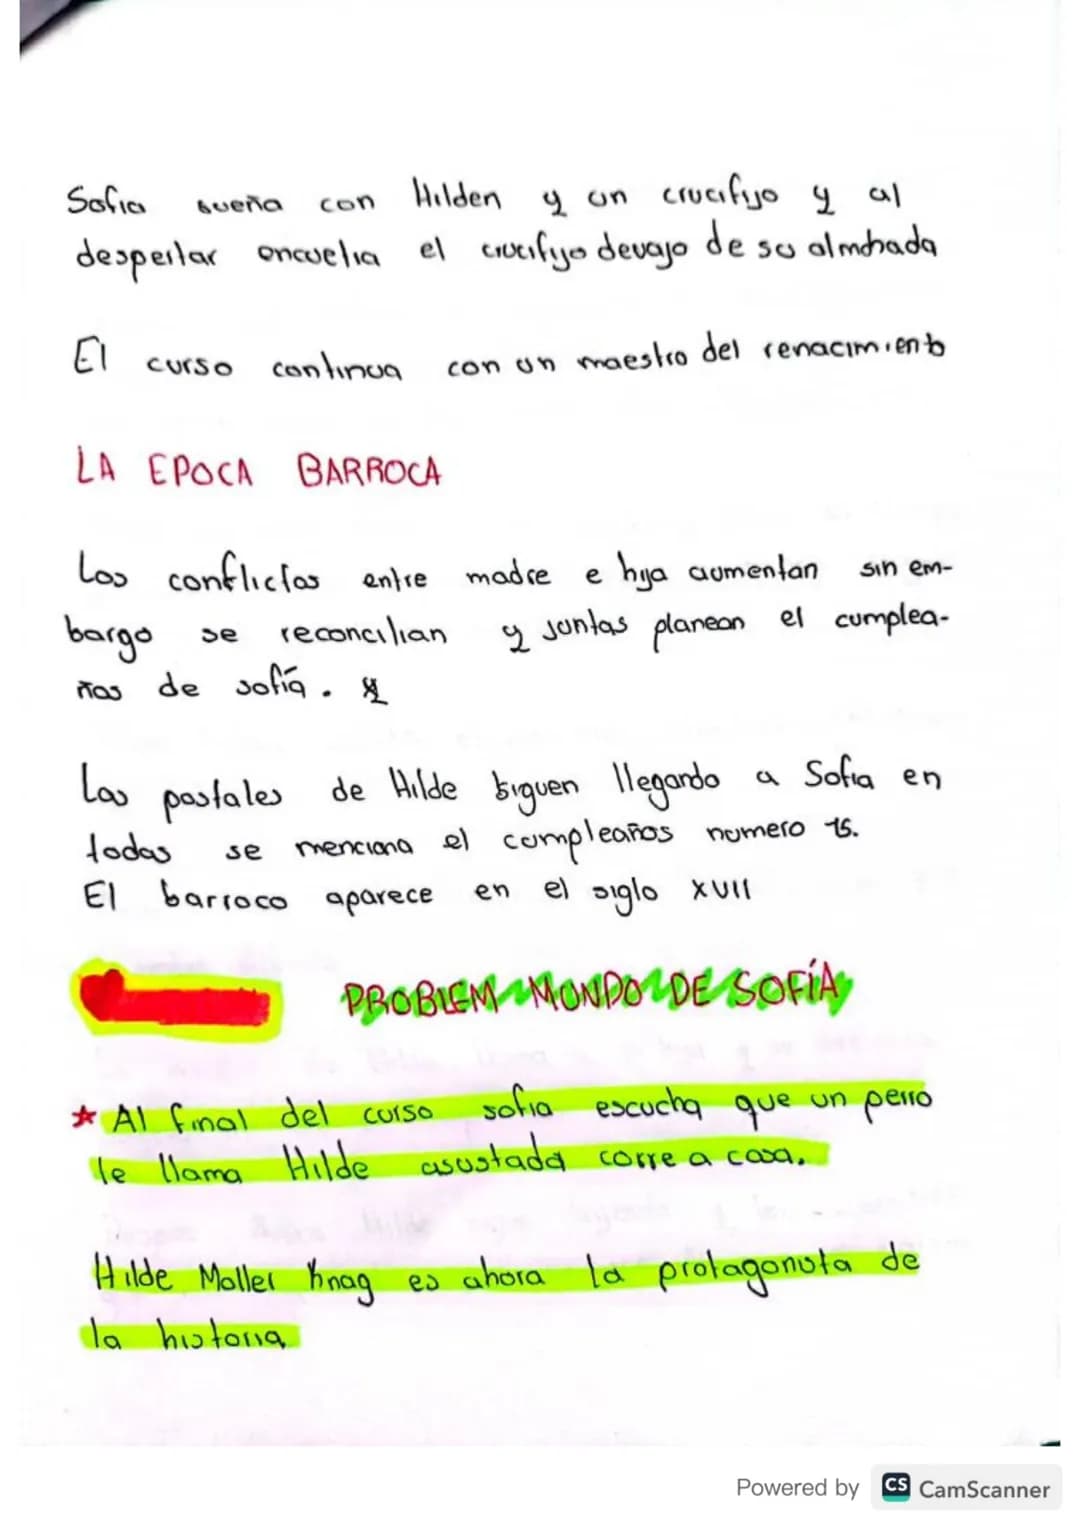 Sofia sueña con Hilden y un crucifyo y al
despertar encuetra el crucifyo devajo de su almohada
El curso continua con un maestro del renacimiento
LA EPOCA BARROCA
Los conflictos entre madre e hija aumentan sin em-
bargo se reconcilian y juntas planean el cumplea-
ños de sofía.
Las postales de Hilde siguen llegando a Sofia en
todas se menciona el cumpleaños numero 15.
El barroco aparece en el siglo XVII
PROBLEM MUNDO DE SOFÍA
★ Al final del curso sofia escucha que un perro
le llama Hilde asustada corre a casa.
Hilde Moller Knag es ahora la protagonista de
la historia
Powered by CS CamScanner